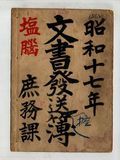 昭和十七年
文書發送簿
塩腦
庶務課